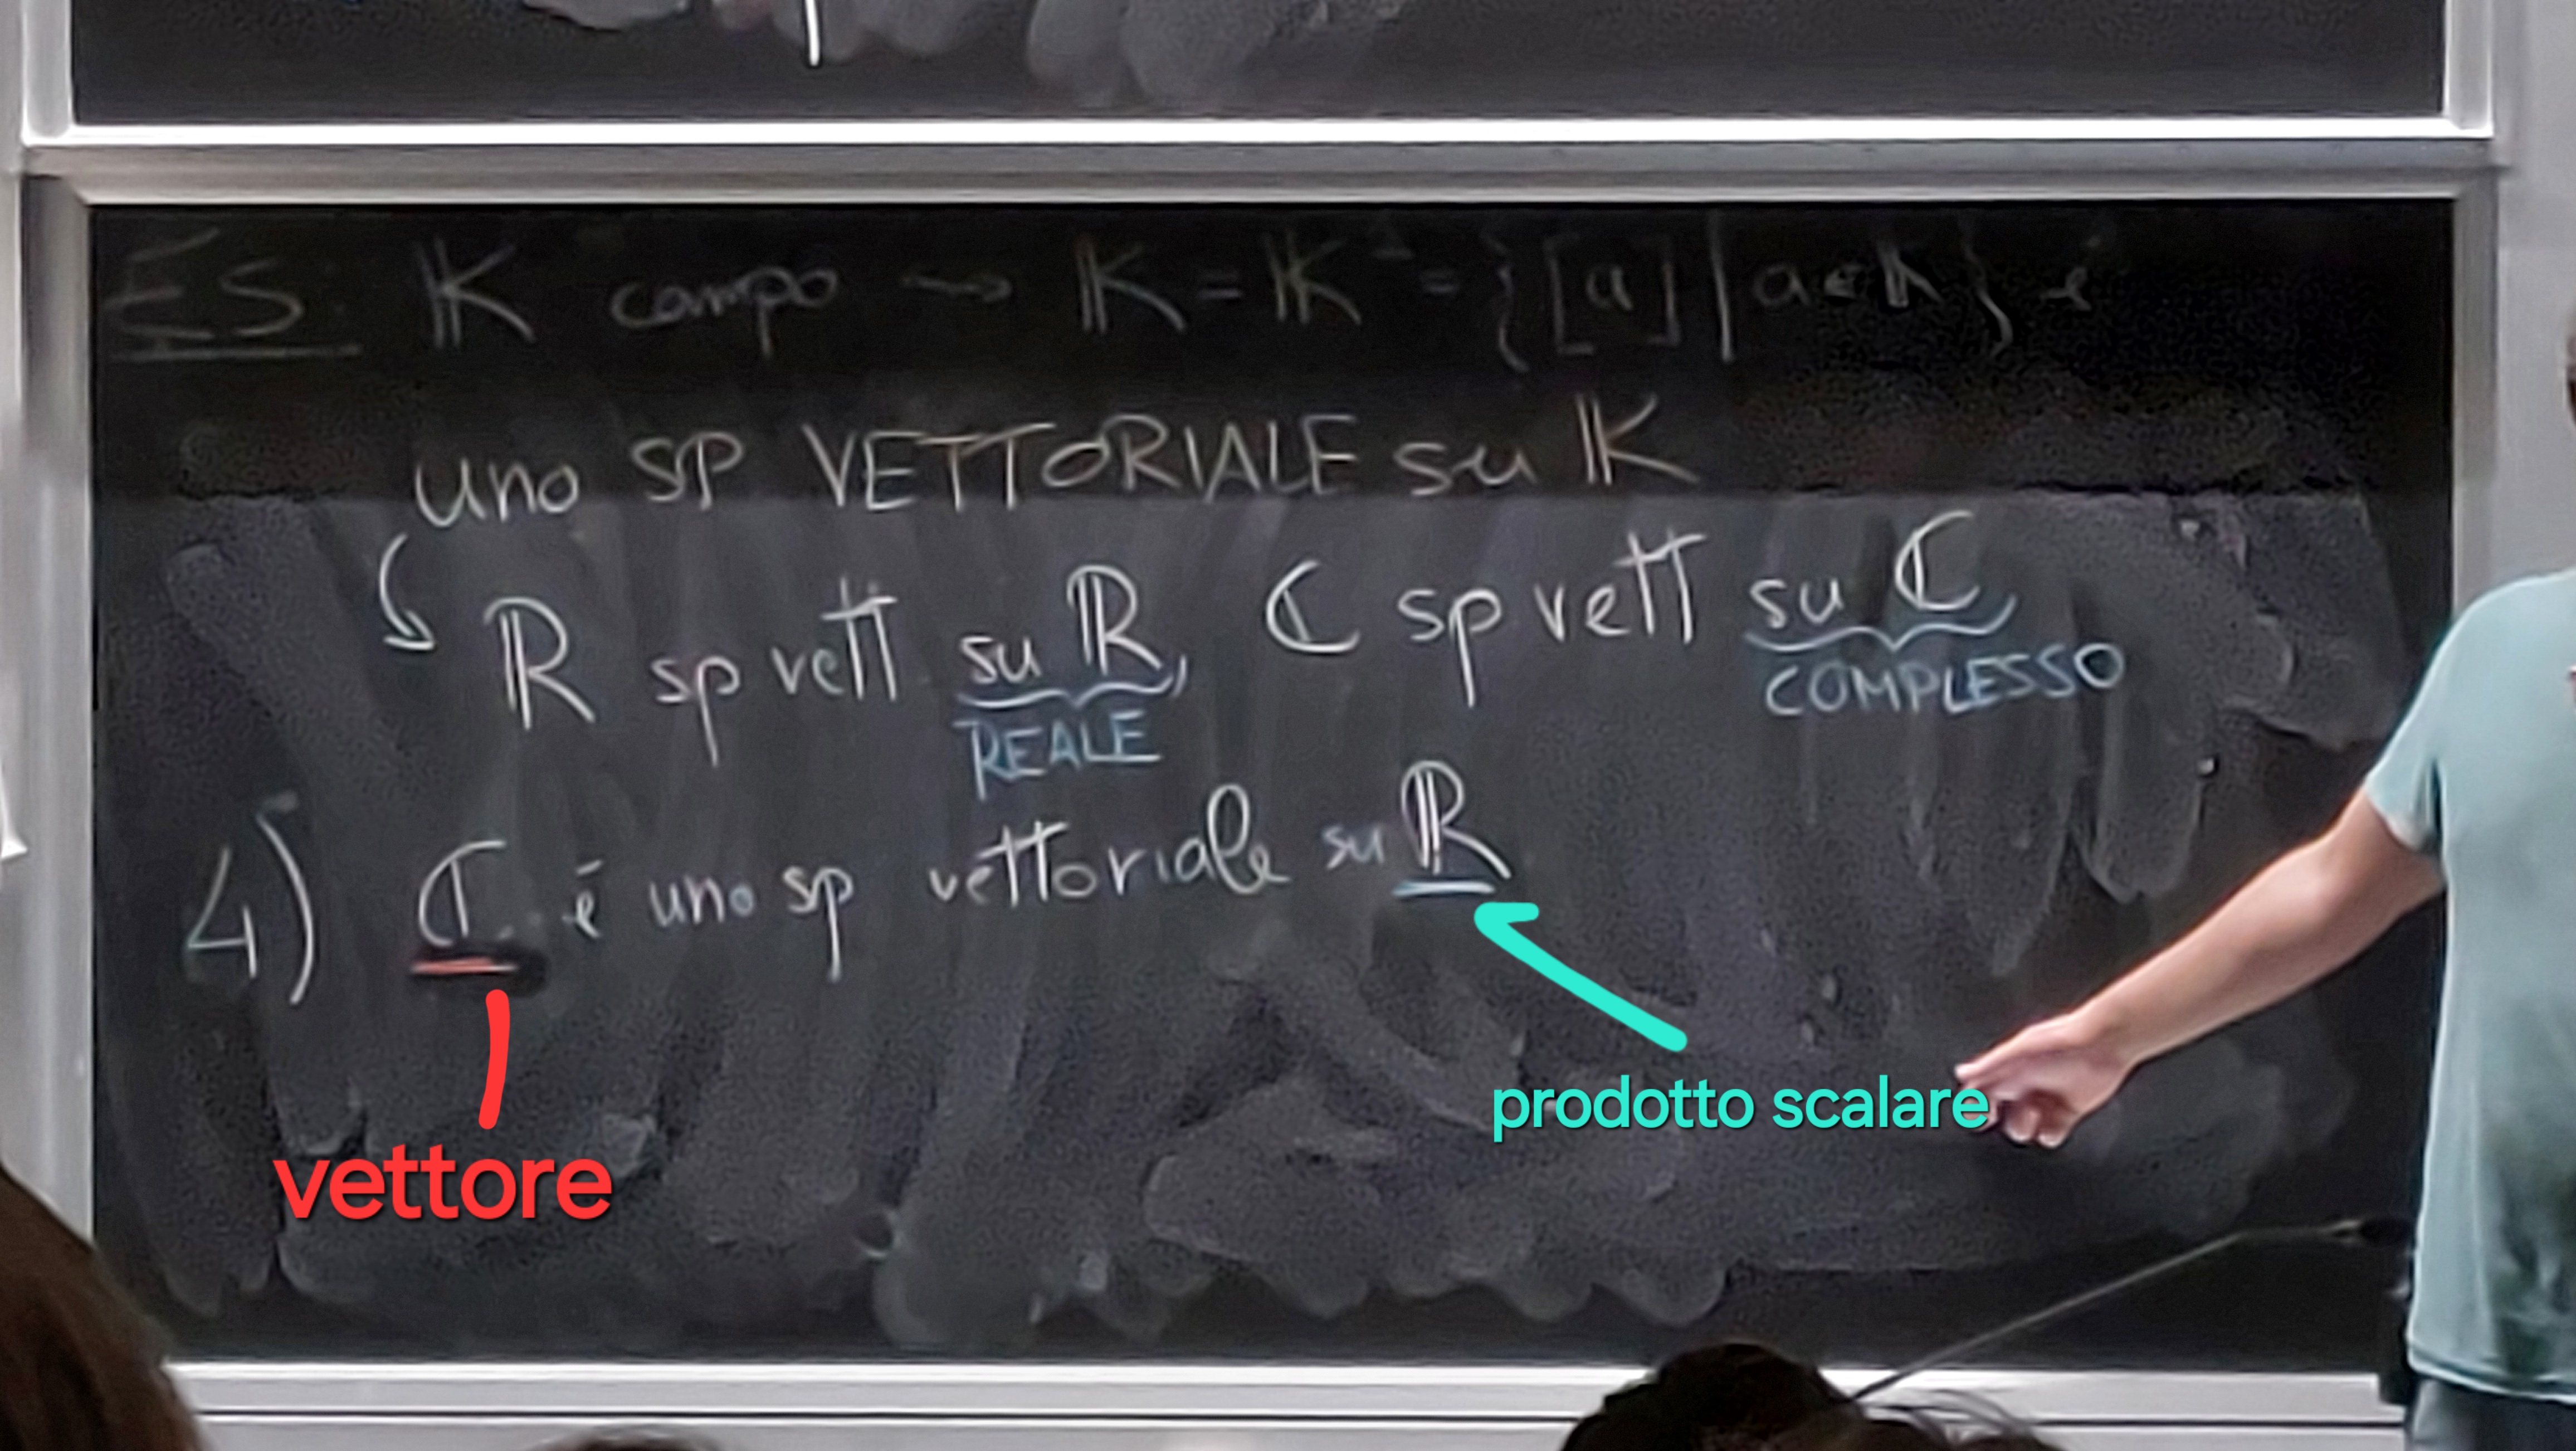 ES: 𝕂 campo ⇝ 𝕂 = 𝕂¹ = {[a] | a ∈ 𝕂} è
uno SP VETTORIALE su 𝕂
ℝ sp vett su ℝ, ℂ sp vett su ℂ,
REALE COMPLESSO
4) ℂ è uno sp vettoriale su ℝ
vettore
prodotto scalare